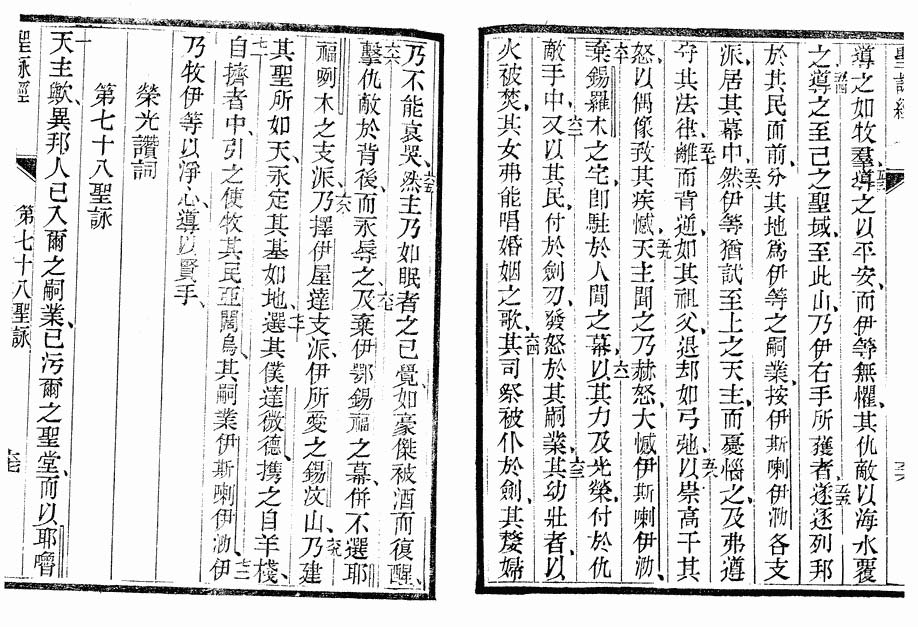 聖詠經
導之如牧羣、五三導之以平安、而伊等無懼、其仇敵以海水覆
之、五四導之至己之聖域、至此山、乃伊右手所獲者、五五遂逐列邦
於其民面前、分其地爲伊等之嗣業、按伊斯喇伊泐各支
派、居其幕中、五六然伊等猶試至上之天主、而憂惱之、及弗遵
守其法律、五七離而背逆、如其祖父、退却如弓弛、五八以崇高干其
怒、以偶像致其疾憾、五九天主聞之、乃赫怒、大憾伊斯喇伊泐、
六十棄錫羅木之宅、卽駐於人間之幕、六一以其力及光榮、付於仇
敵手中、六二又以其民、付於劍刃、發怒於其嗣業、六三其幼壯者以
火被焚、其女弗能唱婚姻之歌、六四其司祭被仆於劍、其嫠婦
乃不能哀哭、六五然主乃如眠者之己覺、如豪傑被酒而復醒、
六六擊仇敵於背後、而永辱之、六七及棄伊鄂錫福之幕、併不選耶
福咧木之支派、六八乃擇伊屋達支派、伊所愛之錫汶山、六九乃建
其聖所如天、永定其基如地、七十選其僕達微德、携之自羊棧、
七一自擠者中、引之使牧其民亞闊烏、其嗣業伊斯喇伊泐、七二伊
乃牧伊等以淨心、導以賢手、
榮光讚詞
第七十八聖詠
一天主歟、異邦人已入爾之嗣業、已污爾之聖堂、而以耶嚕
聖詠經
第七十八聖詠